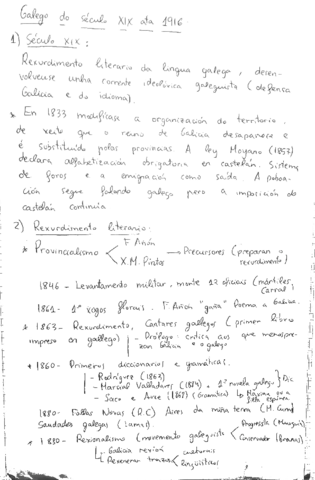 Galego do século XIX ata 1916.
1) Século XIX:
Rexurdimento literario da lingua galega, desen-
volvese unha corrente ideolóxica galeguista (defensa
Galicia e do idioma).
* En 1833 modifícase a organización do territorio.
de xeito que o reino de Galicia desaparece e
é substituído polas provincias. A ley Moyano (1857)
declara alfabetización obrigatoria en castelán. Sistema
de foros e a emigración como saída. A poboa-
ción segue falando galego pero a imposición do
castelán continúa
2) Rexurdimento literario:
* Provincialismo < F Añón
X.M. Pintos
— Precursores (preparan o
rexurdimento)
1846 - Levantamento militar, morte 12 oficiais (mártires,
Carral)
1861 - 1º xogos florais. F Añón "gaña" Poema a Galicia.
* 1863 - Rexurdimento, Cantares gallegos (primer libro
impreso en gallego) - Prólogo: crítica aos que menospre-
zan Galicia e o galego
* 1860 - Primeros diccionarios e gramáticas.
- Rodríguez (1863)
- Marcial Valladares (1884), 1ª novela galega. Dic
- Saco e Arce (1868) (Gramática) Maxina ou a
filla espúrea
1880 - Follas Novas (R.C) Aires da miña terra (M. Curros)
Saudades galegas (Lamas).
* 1880 - Rexionalismo (movemento galeguista < Progresista (Murguía)
Conservador (Brañas)
Galicia rexión
Recuperar trazos < culturais
lingüísticos